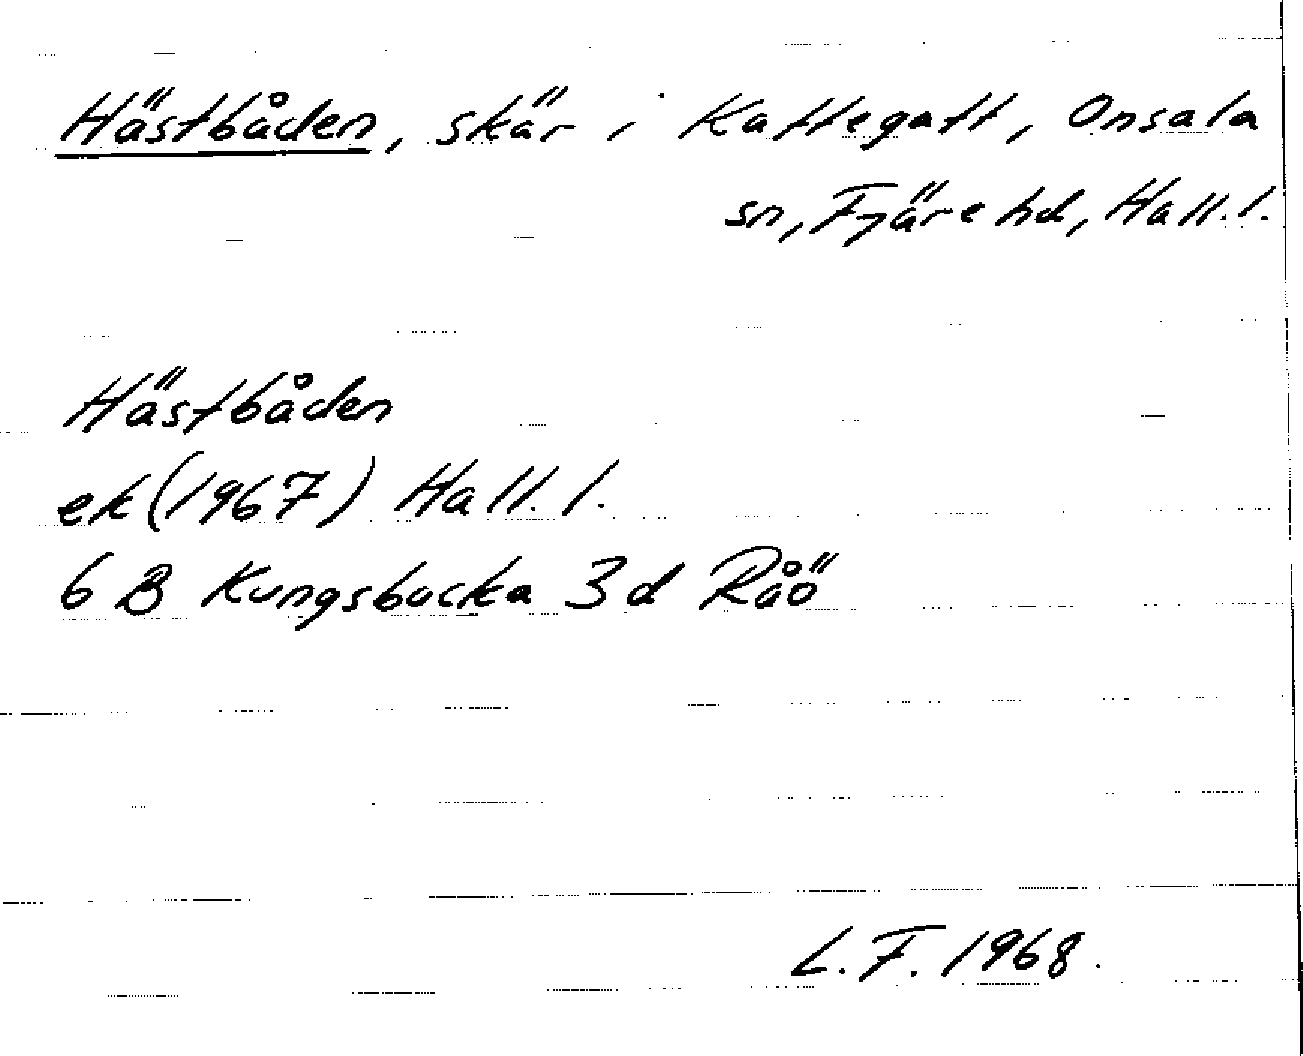 Hästbåden, skär i Kattegatt, Onsala
sn, Fjäre hd, Hall. l.
Hästbåden
ek (1967) Hall. l.
6 B Kungsbacka 3d Råö
L. F. 1968.